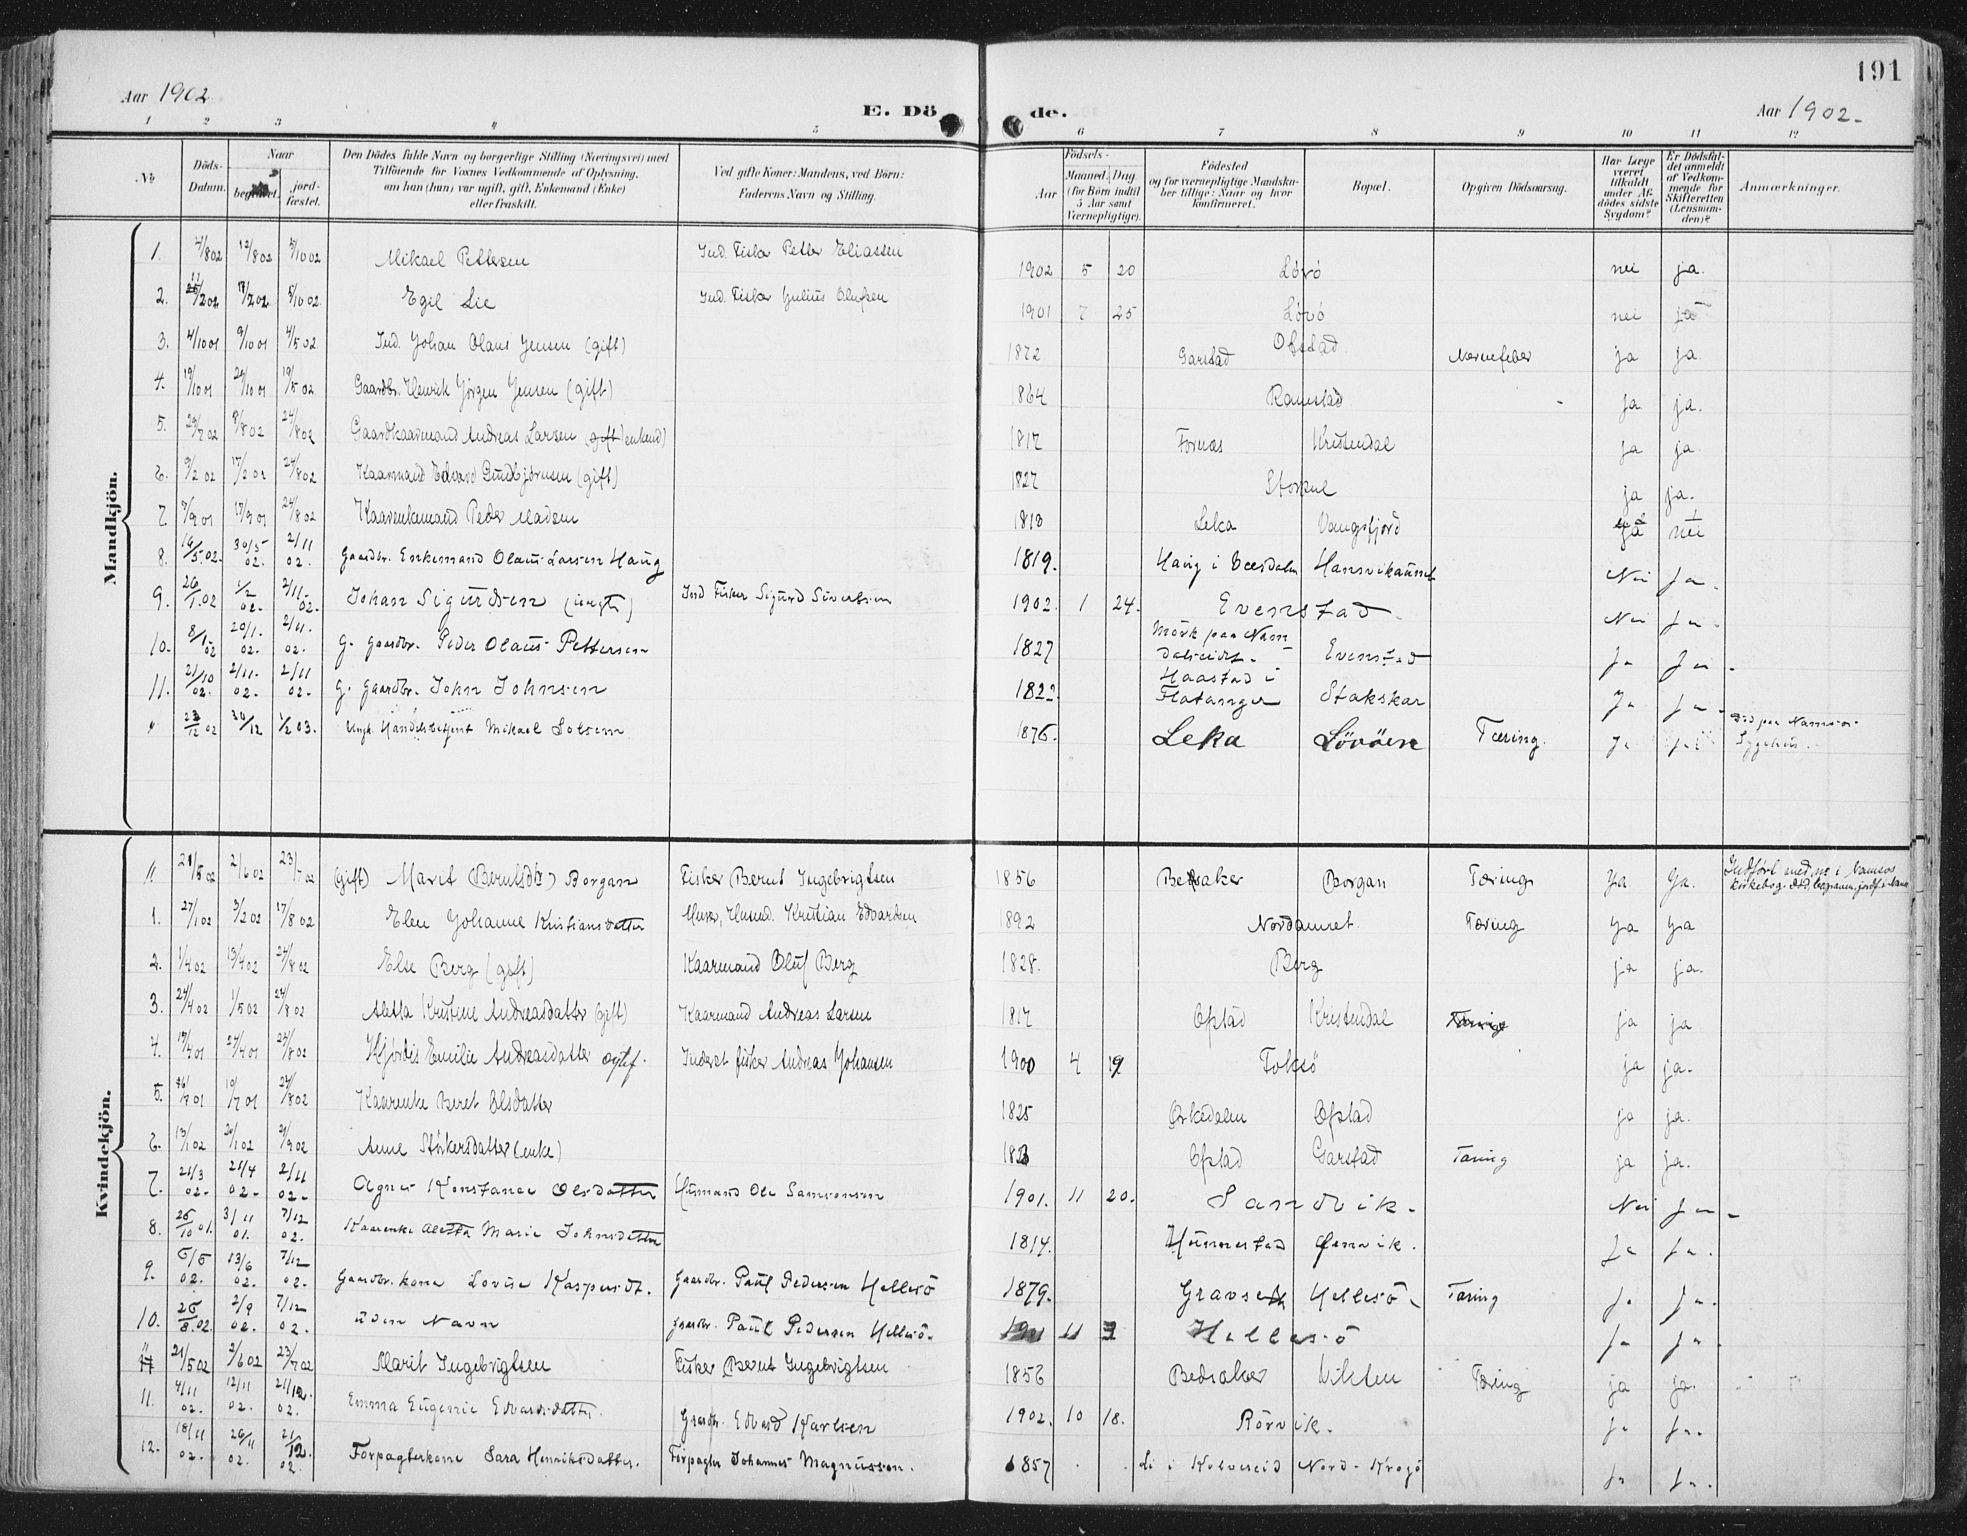 191
Aar 1902
E. Dö de.
Aar 1902.
1 2 3 4 5 6 7 8 9 10 11 12
No.
Döds-Datum.
Naar
begravet.
jord-fæstet.
Den Dödes fulde Navn og borgerlige Stilling (Næringsvei) med
Tilföiende for Voxnes Vedkommende af Oplysning,
om han (hun) var ugift, gift, Enkemand (Enke)
eller fraskilt.
Ved gifte Koner: Mandens, ved Börn:
Faderens Navn og Stilling.
Födsels-
Aar
Maaned. Dag
(for Börn indtil
5 Aar samt
Værnepligtige).
Födested
og for værnepligtige Mandska-
ber tillige: Naar og hvor
konfirmeret.
Bopæl.
Opgiven Dödsaarsag.
Har Læge
været
tilkaldt
under Af-
dödes sidste
Sygdom?
Er Dödsfal-
det anmeldt
af Vedkom-
mende for
Skifteretten
(Lensman-
den)?
Anmærkninger.
Mandkjön.
1. 4/8 02 12/8 02 5/10 02 Mikael Pettersen Ind. Fisker Petter Eliassen 1902 5 20 Lövö nei ja.
2. 11/2 02 17/2 02 5/10 02 Egil Lie Ind. Fisker Julius Olufsen 1901 7 25 Lövö nei ja
3. 4/10 01 9/10 01 4/5 02 Ind. Johan Olaus Jensen (gift) 1872 Garstad Ofstad Nervefeber ja ja.
4. 19/10 01 29/10 01 19/5 02 Gaardbr. Henrik Jörgen Jensen (gift) 1864 Ramstad ja ja.
5. 29/7 02 8/8 02 24/8 02 Gaardkaarmand Andreas Larsen (gift) enkemd) 1817 Fornes Kristendal ja ja.
6. 9/2 02 17/2 02 24/8 02 Kaarmand Edvard Gundbjörnsen (gift) 1827 ja ja.
7. 9/9 01 17/9 01 24/8 02 Kaarenkemand Peder Madsen 1818 Leka Vaugsfjord ja nei
8. 16/5.02. 30/5 02. 2/11 02. Gaardbr. Enkemand Olaus Larsen Haug 1819. Haug i Værdalen Nei Ja.
9. 26/1.02 1/2 02. 2/11 02. Johan Sigurdsen Ind Fisker Sigurd Sivertsen 1902. 1 24. Evenstad Nei Ja.
10. 8/1 02 20/1. 02. 2/11. 02. g. gaardbr. Peder Olaus Pettersen 1827 Mörk paa Nam daleidet. Evenstad Ja Ja.
11. 21/10 02. 2/11. 02. 2/11 02. g. gaardbr. John Johnsen 1822. Haastad i Flatanger Stakskar Ja Ja.
23/12 02 30/12 1/2 03. Ungk. Handelsbetjent Mikael 1876. Leka Lövöen Tæring. Ja Ja Död paa Namsos Sygehus.
Kvindekjön.
11. 21/5 02 2/6 02 23/7 02 (gift) Marit (Berntsdtr) Borgan Fisker Bernt Ingebrigtsen 1856 Bedsaker Borgan Tæring Ja Ja. Indfört med nr i Namsos kirkebog.
1. 27/1 02 3/2 02 17/8 02 Elen Johanne Kristiansdatter Husm. Kristian Edvardsen 1892 Nordaunet. Tæring Ja ja
2. 1/4 02 13/4 02 24/8 02 Else Berg (gift) Kaarmand Oluf Berg 1828. Berg ja ja.
3. 24/4 02 1/5 02 24/8 02 Aletta Kristine Andreasdatter (gift) Kaarmand Andreas Larsen 1817 Ofstad Kristendal Tæring ja ja
4. 17/4 01 24/4 01 24/8 02 Hjördis Emilie Andreasdatter Inderst fisker Andreas Johansen 1900 4 19 Foksö ja ja.
5. 16/7 01 19/7 01 24/8 02 Kaarenke Beret Olsdatter 1825 Orkedalen Ofstad ja ja.
6. 13/1 02 20/1 02 21/9 02 Anne Störkersdatter (enke) 1823 Ofstad Garstad Tæring ja ja.
7. 21/3 02. 21/4 02. 2/11 02. Agnes Konstance Olsdatter Husmand Ole Samsonsen 1901. 11 20. Sandvik. Nei Ja
8. 25/10 01. 3/11 01. 7/12 02. Kaarenke Aletta Marie Johnsdatter 1814. Hunnestad Ja Ja.
9. 5/6 02. 13/6 02. 7/12 02. Gaardbr. kone Lovise Kaspersdt. Gaardbr. Paul Pedersen Hellesö 1879. Hellesö Tæring Ja Ja.
10. 25/8.02. 2/9 02. 7/12 02. uden Navn gaardbr. Paul Pedersen Hellesö. Hellesö Ja Ja.
11 21/5 02 2/6 02 23/7 02 Marit Ingebrigtsen Fisker Bernt Ingebrigtsen 1856 Bedsaker Vikten Tæring ja ja.
11. 4/11 02. 12/11 02. 21/12. 02. Emma Eugenie Edvardsdatter. Gaardbr. Edvard Karlsen 1902. 10 18. Rörvik. Ja Ja.
12. 18/11 02. 26/11 02. 21/12. 02. Forpagterkone Sara Henriksdatter. Forpagter Johannes Magnussen. 1857 Li i Kolvereid Nord-Krogö Ja Ja.